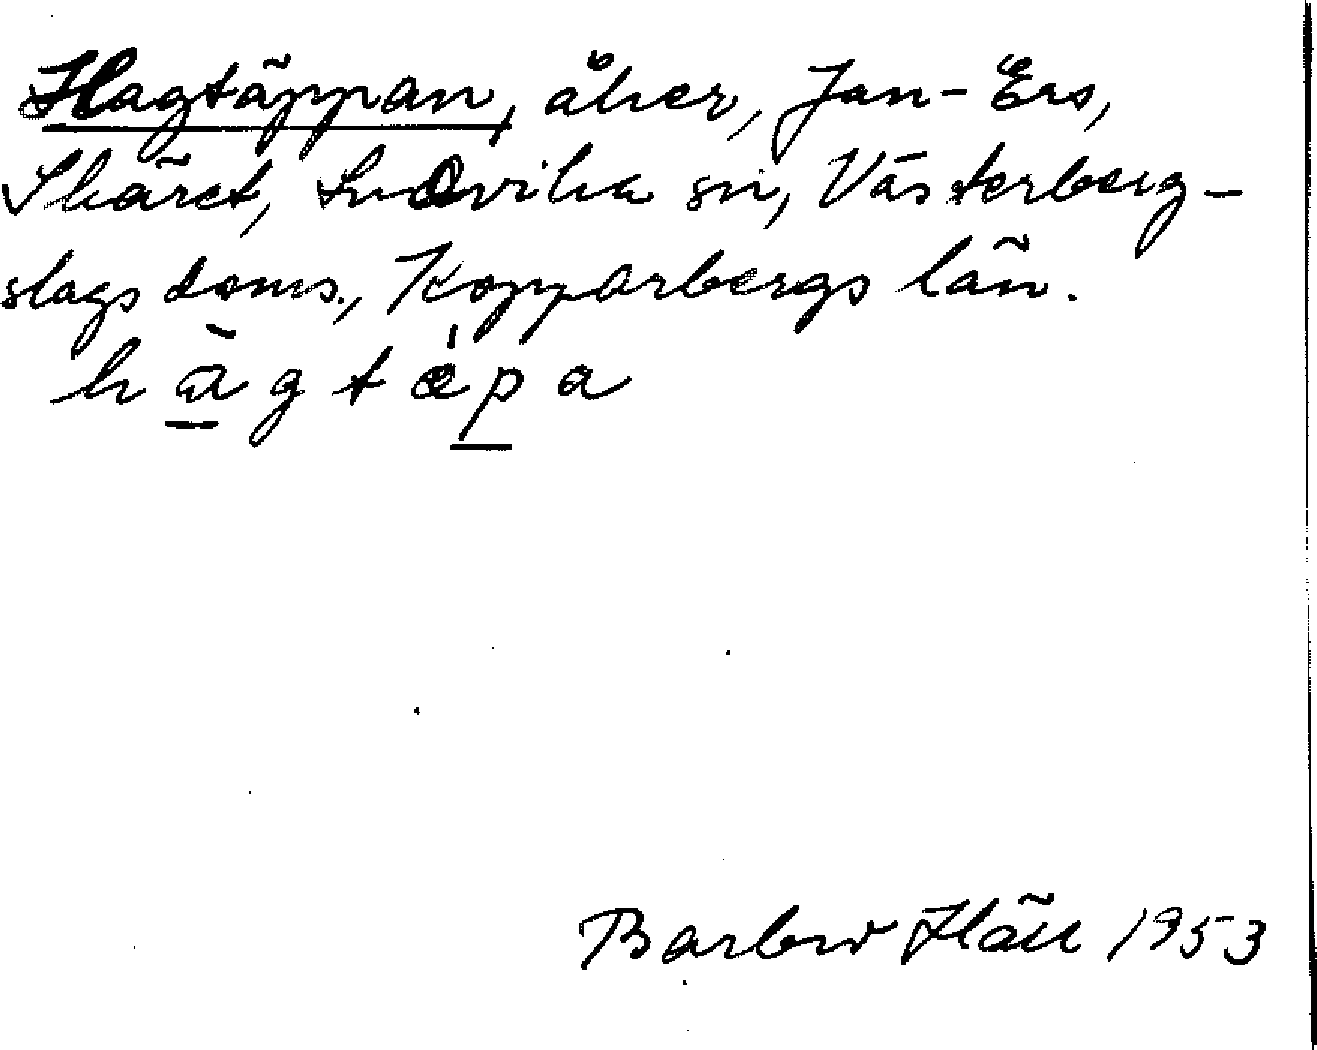 Hagtäppan, åker, Jan-Ers,
Skäret, Ludvika sn, Västerberg-
slags doms., Kopparbergs län.
hàgtæ̀pa
Barbro Häll 1953